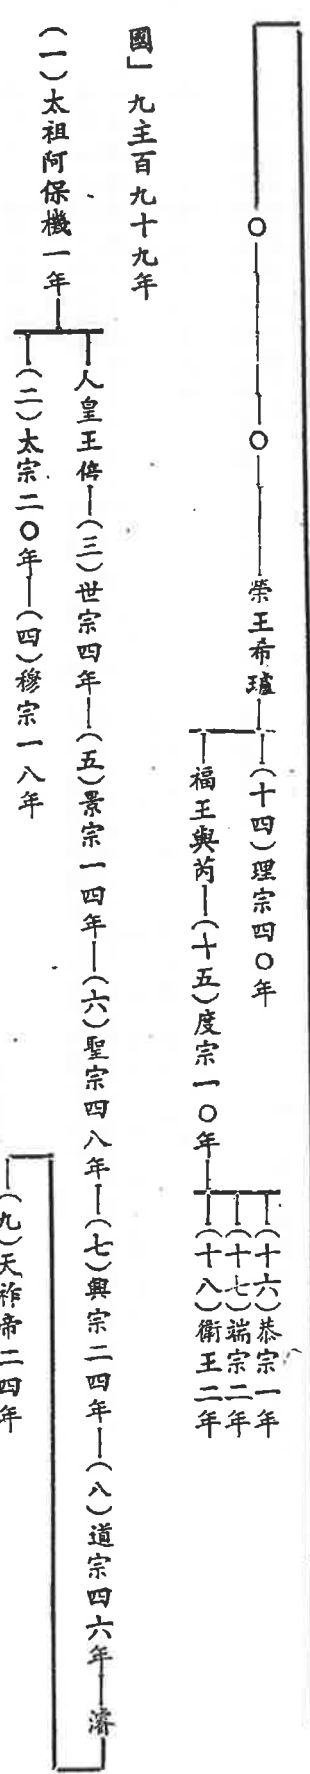 榮王希瓐
(十四)理宗四〇年
福王與芮—(十五)度宗一〇年
(十六)恭宗一年
(十七)端宗二年
(十八)衛王二年
國」九主百九十九年
(一)太祖阿保機一年
人皇王倍—(三)世宗四年—(五)景宗一四年—(六)聖宗四八年—(七)興宗二四年—(八)道宗四六年—濬
(二)太宗二〇年—(四)穆宗一八年
(九)天祚帝二四年